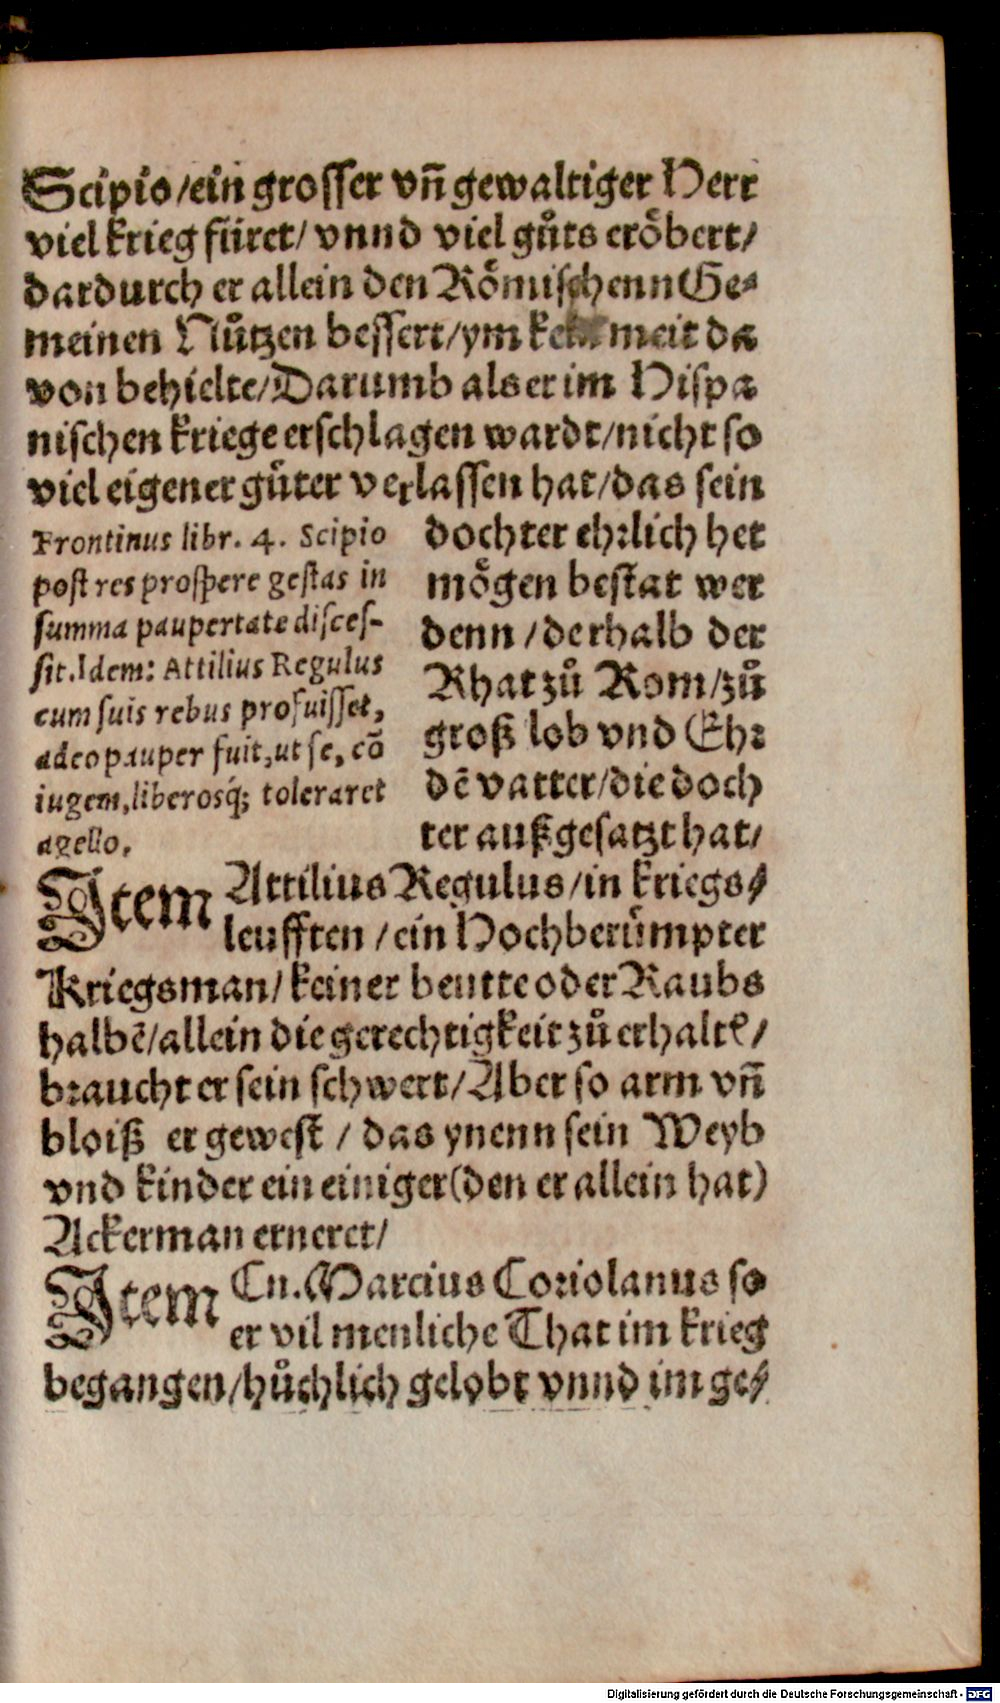 Scipio/ein grosser vñ gewaltiger Herr
viel krieg füret/ vnnd viel gůts erôbert/
dardurch er allein den Rômischenn Ge⸗
meinen Nůtzen bessert/ym meit da
von behielte/Darumb als er im Hispa
nischen kriege erschlagen wardt/nicht so
viel eigener gůter verlassen hat/das sein
dochter ehrlich het
môgen bestat wer
denn /derhalb der
Rhat zů Rom/zů
groß lob vnd Ehr
dē vatter/die doch
ter außgesatzt hat/
Frontinus libr. 4. Scipio
post res prospere gestas in
summa paupertate disces-
sit. Idem: Attilius Regulus
cum suis rebus profuisset,
adeo pauper fuit, ut se, cō
iugem, liberosq́; toleraret
agello.
Item Attilius Regulus/in kriegs⸗
leufften /ein Hochberůmpter
Kriegsman/ keiner beutte oder Raubs
halbē/allein die gerechtigkeit zů erhaltē/
braucht er sein schwert/Aber so arm vñ
bloiß er gewest / das ynenn sein Weyb
vnd kinder ein einiger(den er allein hat)
Ackerman erneret/
Item Cn. Marcius Coriolanus so
er vil menliche That im krieg
begangen/hůchlich gelobt vnnd im ge⸗
Digitalisierung gefördert durch die Deutsche Forschungsgemeinschaft - DFG